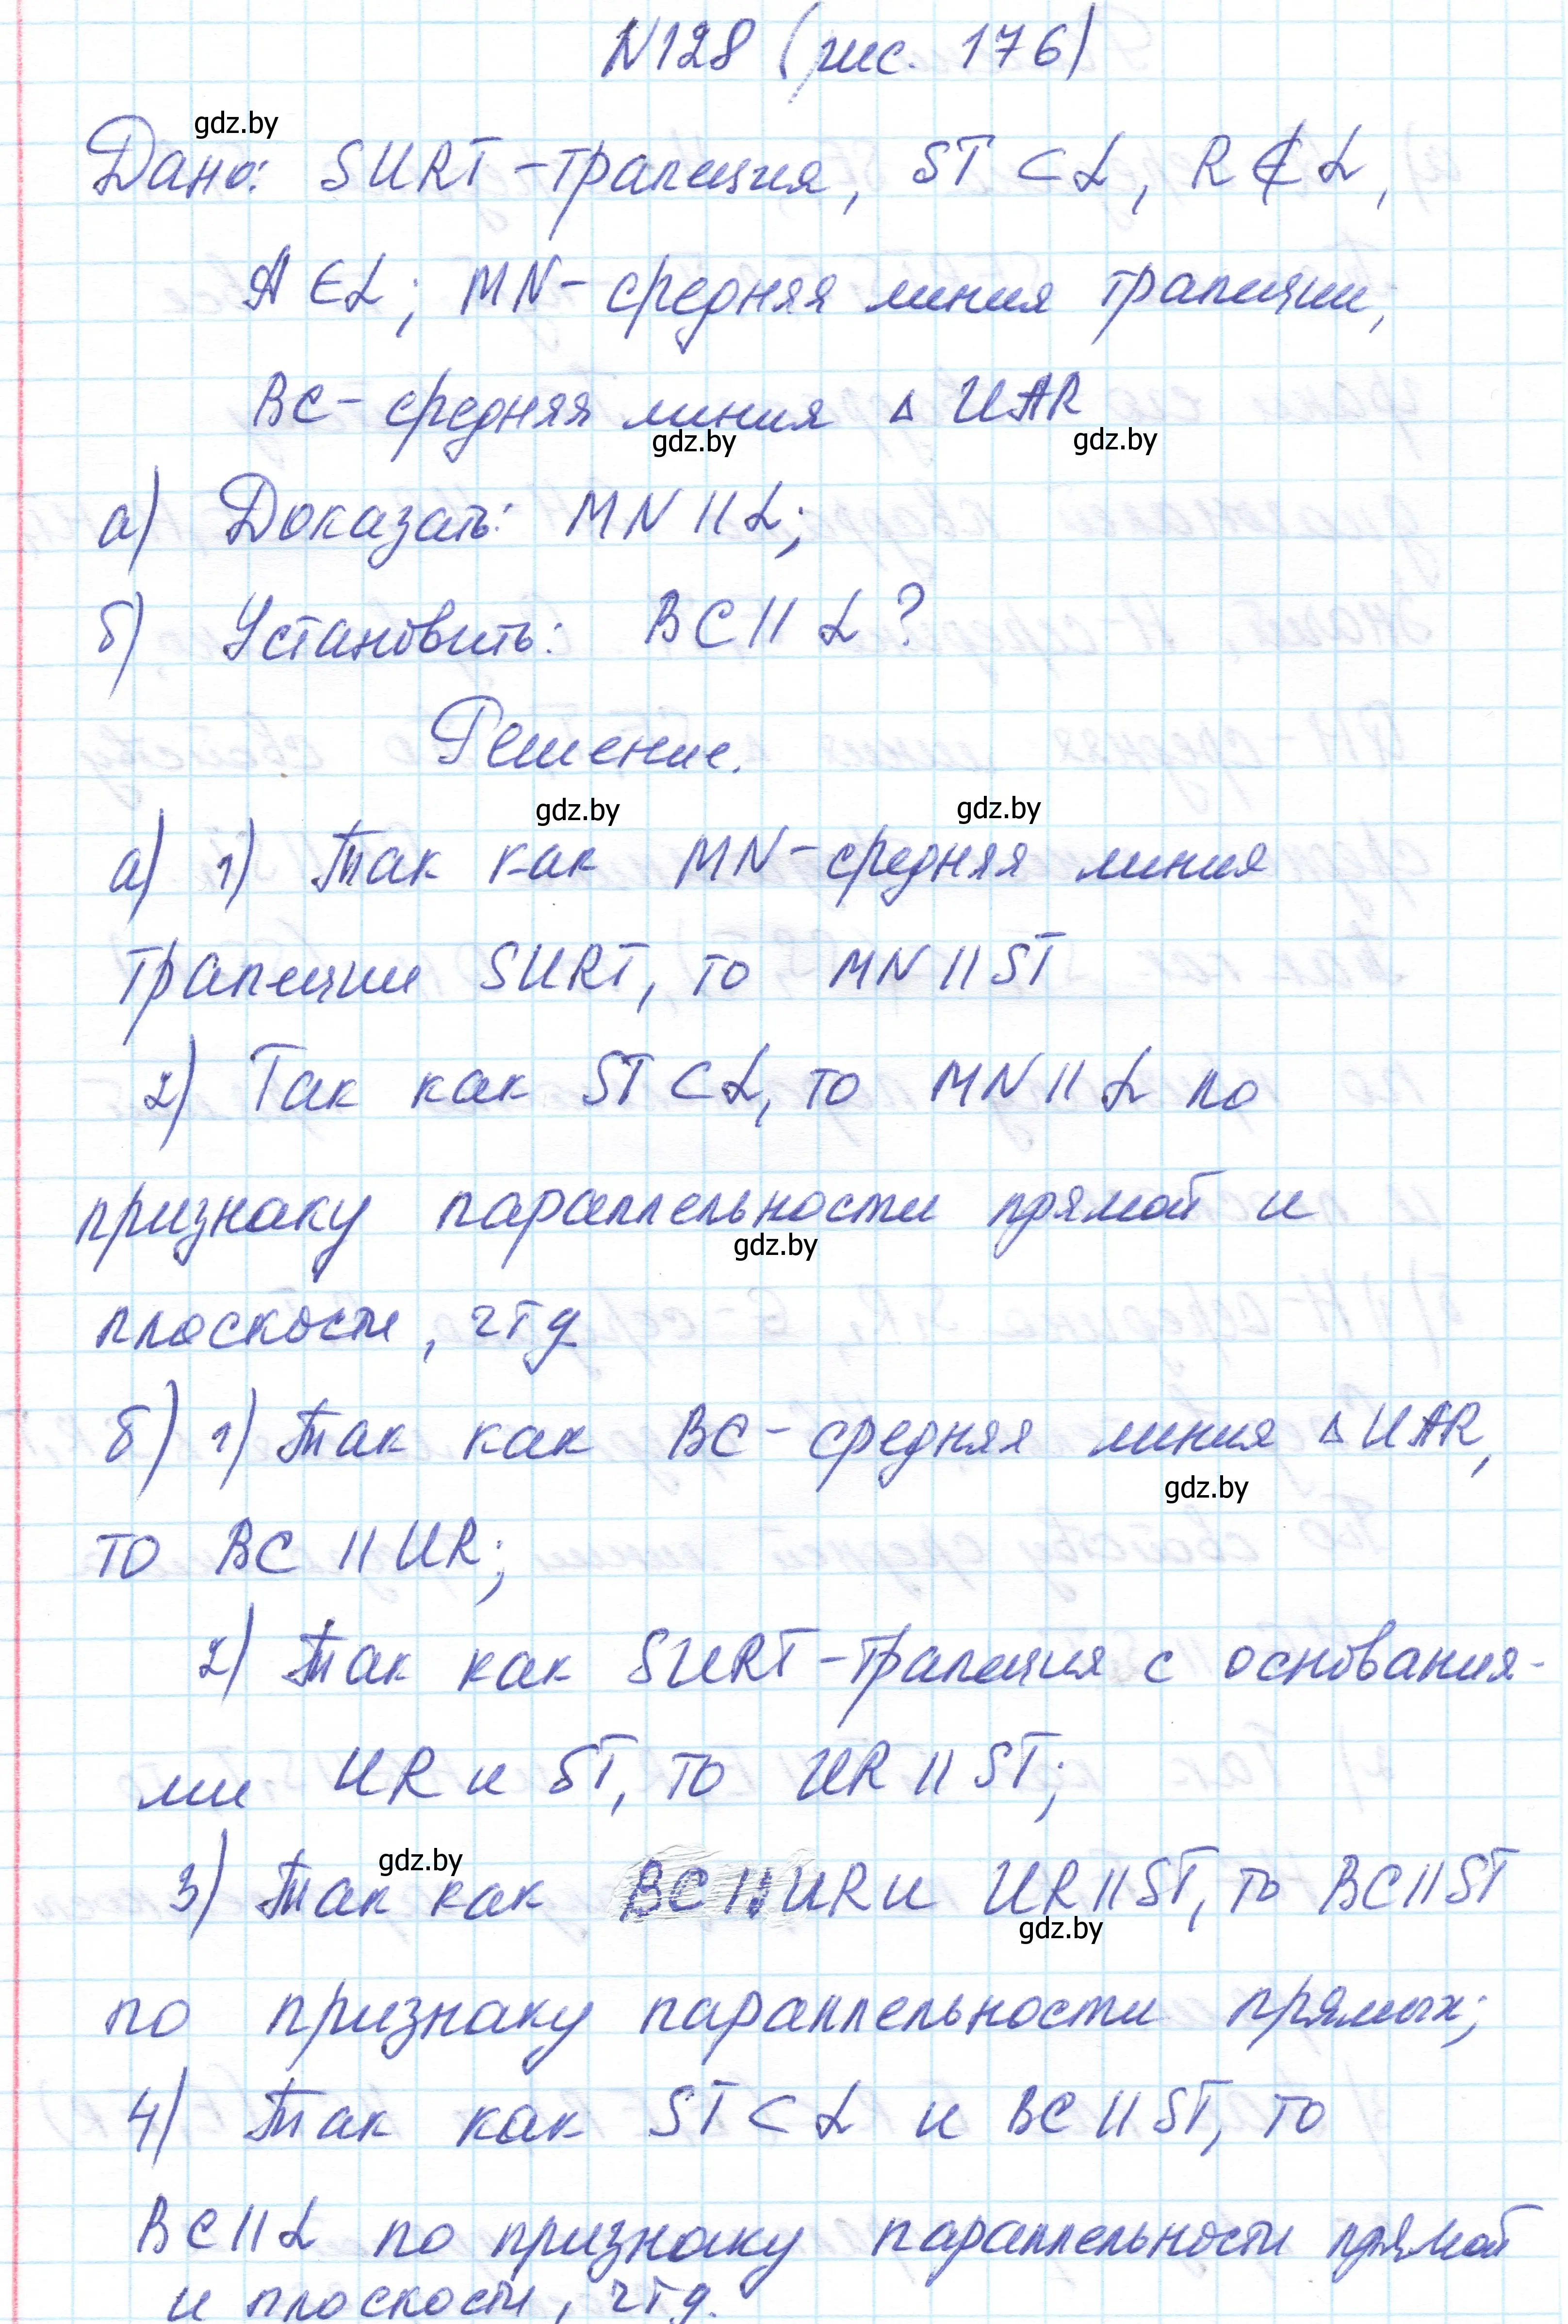 N128 (рис. 176)
gdz.by
Дано: SURT - трапеция, ST ⊂ α, R ⊄ α,
A ∈ α; MN - средняя линия трапеции;
BC - средняя линия △ UAR
gdz.by gdz.by
а) Доказать: MN || α;
б) Установить: BC || α?
Решение.
gdz.by gdz.by
а) 1) Так как MN - средняя линия
трапеции SURT, то MN || ST
2) Так как ST ⊂ α, то MN || α по
признаку параллельности прямой и
gdz.by
плоскости, чтд
б) 1) Так как BC - средняя линия △ UAR,
gdz.by
то BC || UR;
2) Так как SURT - трапеция с основания-
ми UR и ST, то UR || ST;
gdz.by
3) Так как BC || UR и UR || ST, то BC || ST
gdz.by
по признаку параллельности прямых;
4) Так как ST ⊂ α и BC || ST, то
BC || α по признаку параллельности прямой
и плоскости, чтд.